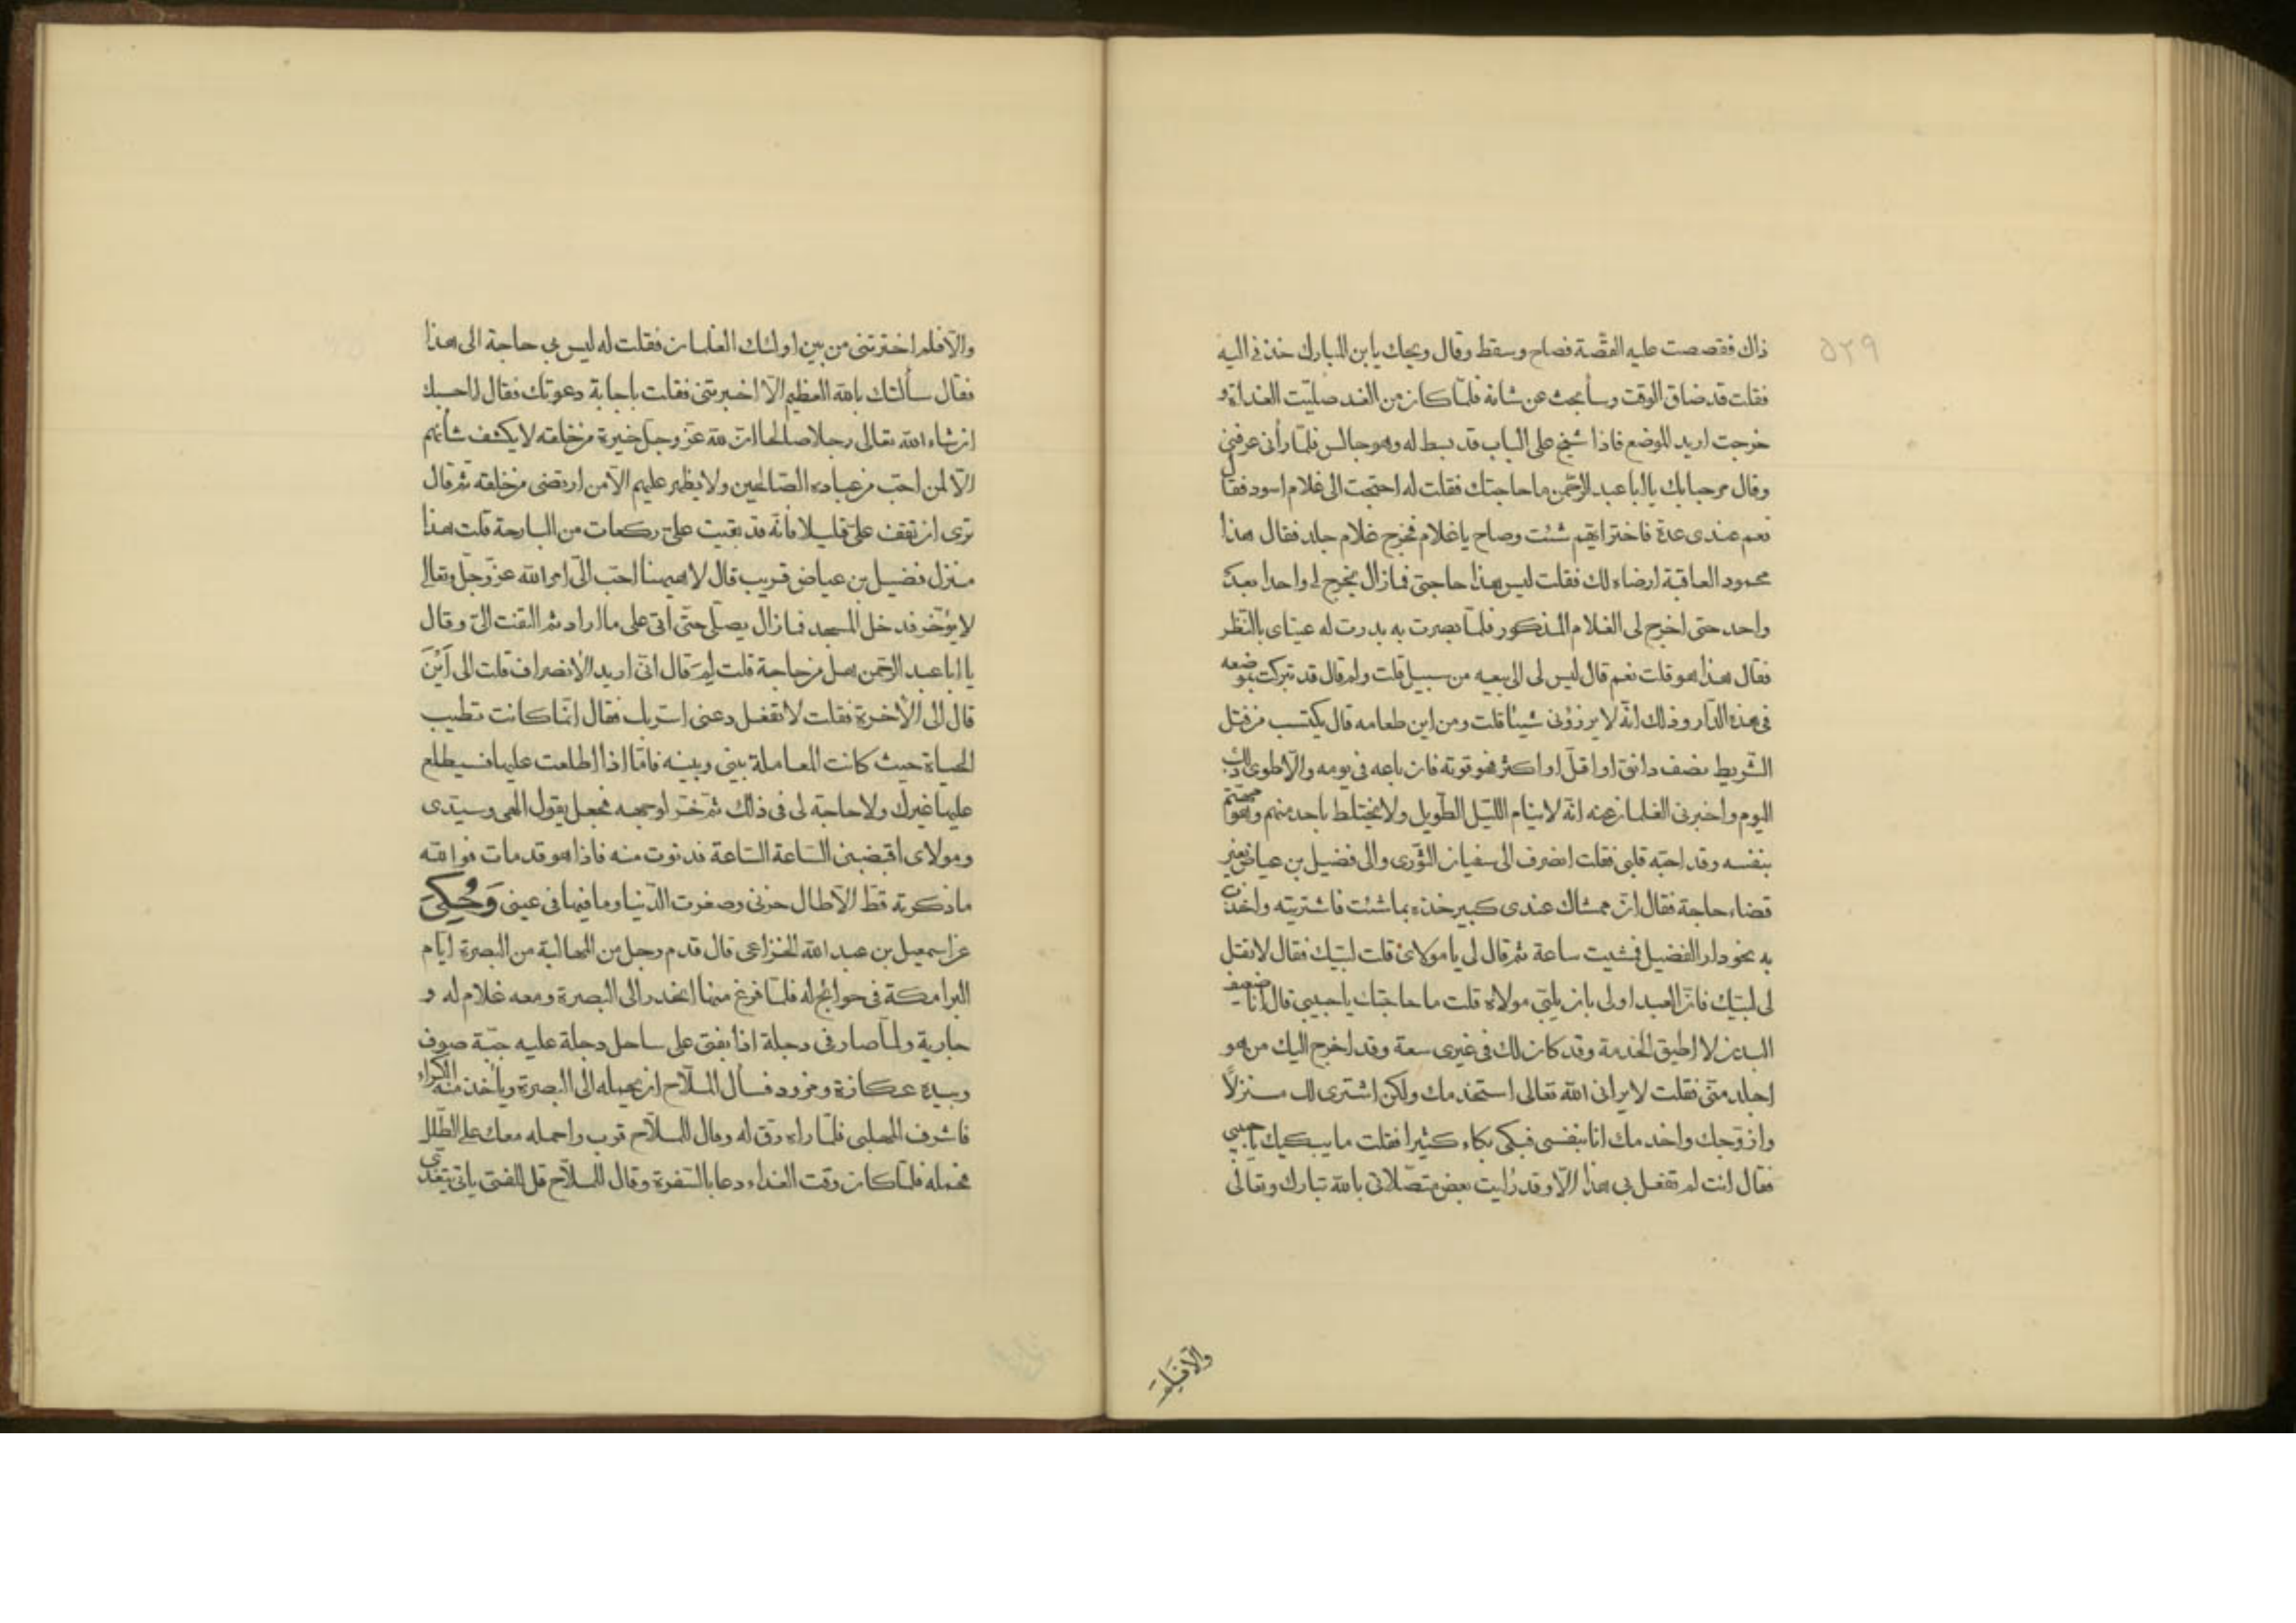 ٥٢٩
ذاك فقصصت عليه القصّة فصاح وسقط وقال ويحك يابن المبارك خذنى اليه
فقلت قد ضاق الوقت وسأبحث عن شانه فلمّا كان من الغد صلّيت الغداة و
خرجت اريد الموضع فاذا شيخ على الباب قد بسط له وهو جالس فلمّا رأنى عرفنى
وقال مرحبا بك ياابا عبد الرّحمن ما حاجتك فقلت له احتجت الى غلام اسود فقال
نعم عندى عدة فاختر ايّهم شئت وصاح ياغلام فخرج غلام جلد فقال هذا
محمود العاقبة ارضاه لك فقلت ليس هذا حاجتى فما زال يخرج لى واحدا بعد
واحد حتى اخرج لى الغلام المذكور فلمّا بصرت به بدرت له عيناى بالنّظر
فقال هذا هو قلت نعم قال ليس لى الى بيعه من سبيل قلت ولم قال قد تبركت بموضعه
فى هذه الدّار وذلك انّه لا يرزؤنى شيئا قلت ومن اين طعامه قال يكتسب من فتل
الشّريط نصف دانق او اقلّ او اكثر فهو قوته فان باعه فى يومه والّا طوى ذلك
اليوم واخبرنى الغلمان عنه انّه لا ينام اللّيل الطّويل ولا يختلط باحد منهم وهو مهتمّ
بنفسه وقد احبّه قلبى فقلت انصرف الى سفيان الثّورى والى فضيل بن عياض بغير
قضاء حاجة فقال انّ ممشاك عندى كبير خذه بما شئت فاشتريته واخذت
به نحو دار الفضيل فمشيت ساعة ثم قال لى يامولاى قلت لبّيك فقال لا تقل
لى لبّيك فانّ العبد اولى بان يلبّى مولاه قلت ما حاجتك ياحبيبى قال انا ضعيف
البدن لا اطيق الخدمة وقد كان لك فى غيرى سعة وقد اخرج اليك من هو
اجلد منّى فقلت لا يرانى الله تعالى استخدمك ولكن اشترى لك منزلًا
وازوّجك واخدمك انا بنفسى فبكى بكاء كثيرا فقلت ما يبكيك ياحبيبى
فقال انت لم تفعل بى هذا الّا وقد رأيت بعض متصّلاتى بالله تبارك وتعالى
والّا فلم
والّا فلم اخترتنى من بين اولئك الغلمان فقلت له ليس بى حاجة الى هذا
فقال سألتك بالله العظيم الّا اخبرتنى فقلت باجابة دعوتك فقال احسبك
ان شاء الله تعالى رجلا صالحا انّ لله عزّ وجلّ خيرة من خلقه لا يكشف شأنهم
الّا لمن احبّ من عباده الصّالحين ولا يظهر عليهم الّا من ارتضى من خلقه ثم قال
ترى ان تقف علىّ قليلا فانّه قد بقيت علىّ ركعات من البارحة قلت هذا
منزل فضيل بن عياض قريب قال لا هيهنا احبّ الىّ امر الله عزّ وجلّ وتعالى
لا يؤخّر فدخل المسجد فما زال يصلّى حتّى اتى على ما اراد ثم التفت الىّ وقال
يا ابا عبد الرّحمن هل من حاجة قلت لِمَ قال انّى اريد الأنصراف قلت الى اَيْنَ
قال الى الأخرة فقلت لا تفعل دعنى استر بك فقال انّما كانت تطيب
الحياة حيث كانت المعاملة بينى وبينه فامّا اذا اطلعت عليها فسيطلع
عليها غيرك ولا حاجة لى فى ذلك ثمّ خرّ لوجهه فجعل يقول الهى وسيّدى
ومولاى اقبضنى السّاعة السّاعة فدنوت منه فاذا هو قد مات فوالله
ما ذكرته قطّ الّا طال حزنى وصغرت الدّنيا وما فيها فى عينى وَحُكِىَ
عن اسمعيل بن عبد الله الخزاعى قال قدم رجل من المهالبة من البصرة ايّام
البرامكة فى حوائج له فلمّا فرغ منها انحدر الى البصرة ومعه غلام له و
جارية ولمّا صار فى دجلة اذا بفتى على ساحل دجلة عليه جبّة صوف
وبيده عكازة ومزود فسأل الملّاح ان يحمله الى البصرة ويأخذ منه الكراء
فاشرف المهلبى فلمّا راه رقّ له وقال للملّاح قرب واحمله معك على الظّلل
فحمله فلمّا كان وقت الغداء دعا بالسّفرة وقال للملّاح قل للفتى ياتى يتغدّى